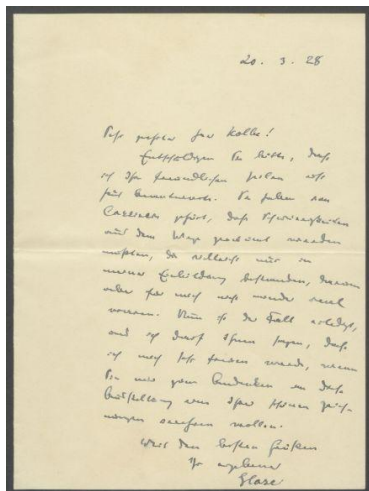 20. 3. 28
Sehr geehrter Herr Kolbe!
Entschuldigen Sie bitte, dass
ich Ihre freundlichen Zeilen erst
jetzt beantworte. Sie haben von
Cassirer gehört, dass Schwierigkeiten
aus dem Wege geräumt werden
mussten, die vielleicht nur in
meiner Einbildung bestanden, darum
aber für mich nicht minder real
waren. Nun ist der Fall erledigt,
und ich darf Ihnen sagen, dass
ich mich sehr freuen werde, wenn
Sie mir zum Andenken an diese
Ausstellung eine Ihrer schönen Zeich-
nungen verehren wollen.
Mit den besten Grüßen
Ihr ergebener
Glaser